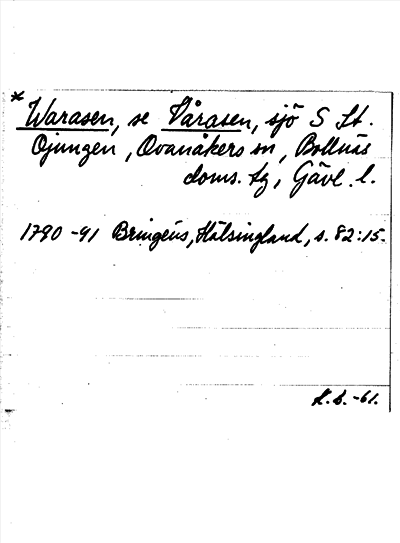 * Warasen, se Vårasen, sjö S St.
Öjungen, Ovanåkers sn, Bollnäs
doms. tg, Gävl. l.
1790-91 Bringéus, Hälsingland, s. 82:15.
K.L. -61.